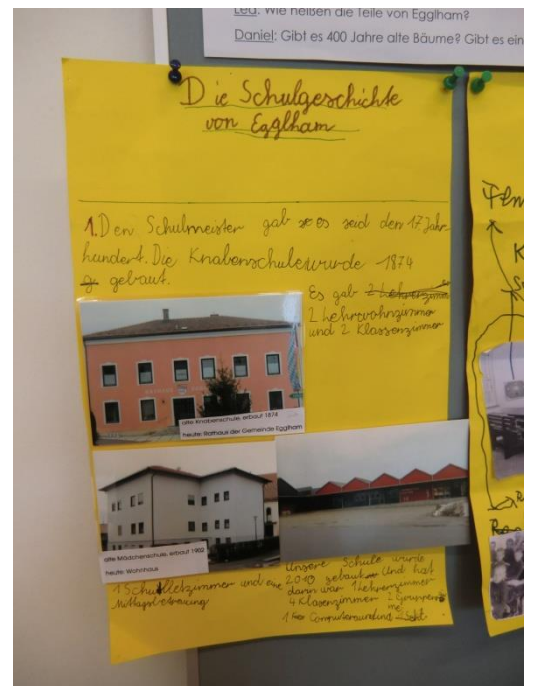 Lea: Wie heißen die Teile von Egglham?
Daniel: Gibt es 400 Jahre alte Bäume? Gibt es ein
Die Schulgeschichte
von Egglham
1. Den Schulmeister gab es seid den 17. Jahr-
hundert. Die Knabenschule wurde 1874
gebaut.
Es gab 2 Lehrerzimm
2 Lehrwohnzimmer
und 2 Klassenzimmer
alte Knabenschule, erbaut 1874
heute: Rathaus der Gemeinde Egglham
alte Mädchenschule, erbaut 1902
heute: Wohnhaus
1 Schulleitzimmer und eine
Mittagsbetreuung
Unsere Schule wurde
2010 gebaut. Und hat
darin war 1 Lehrerzimmer
4 Klasenzimmer 2 Gruppen
1 Computerraum und